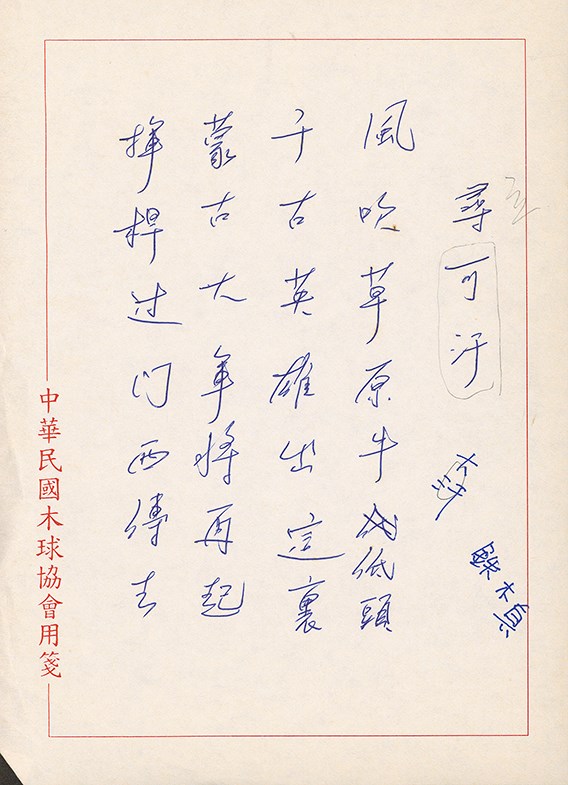 尋可汗
大汗
鉄木真
風吹草原牛低頭
千古英雄出這裏
蒙古大軍將再起
揮桿过门西傳去
中華民國木球協會用箋